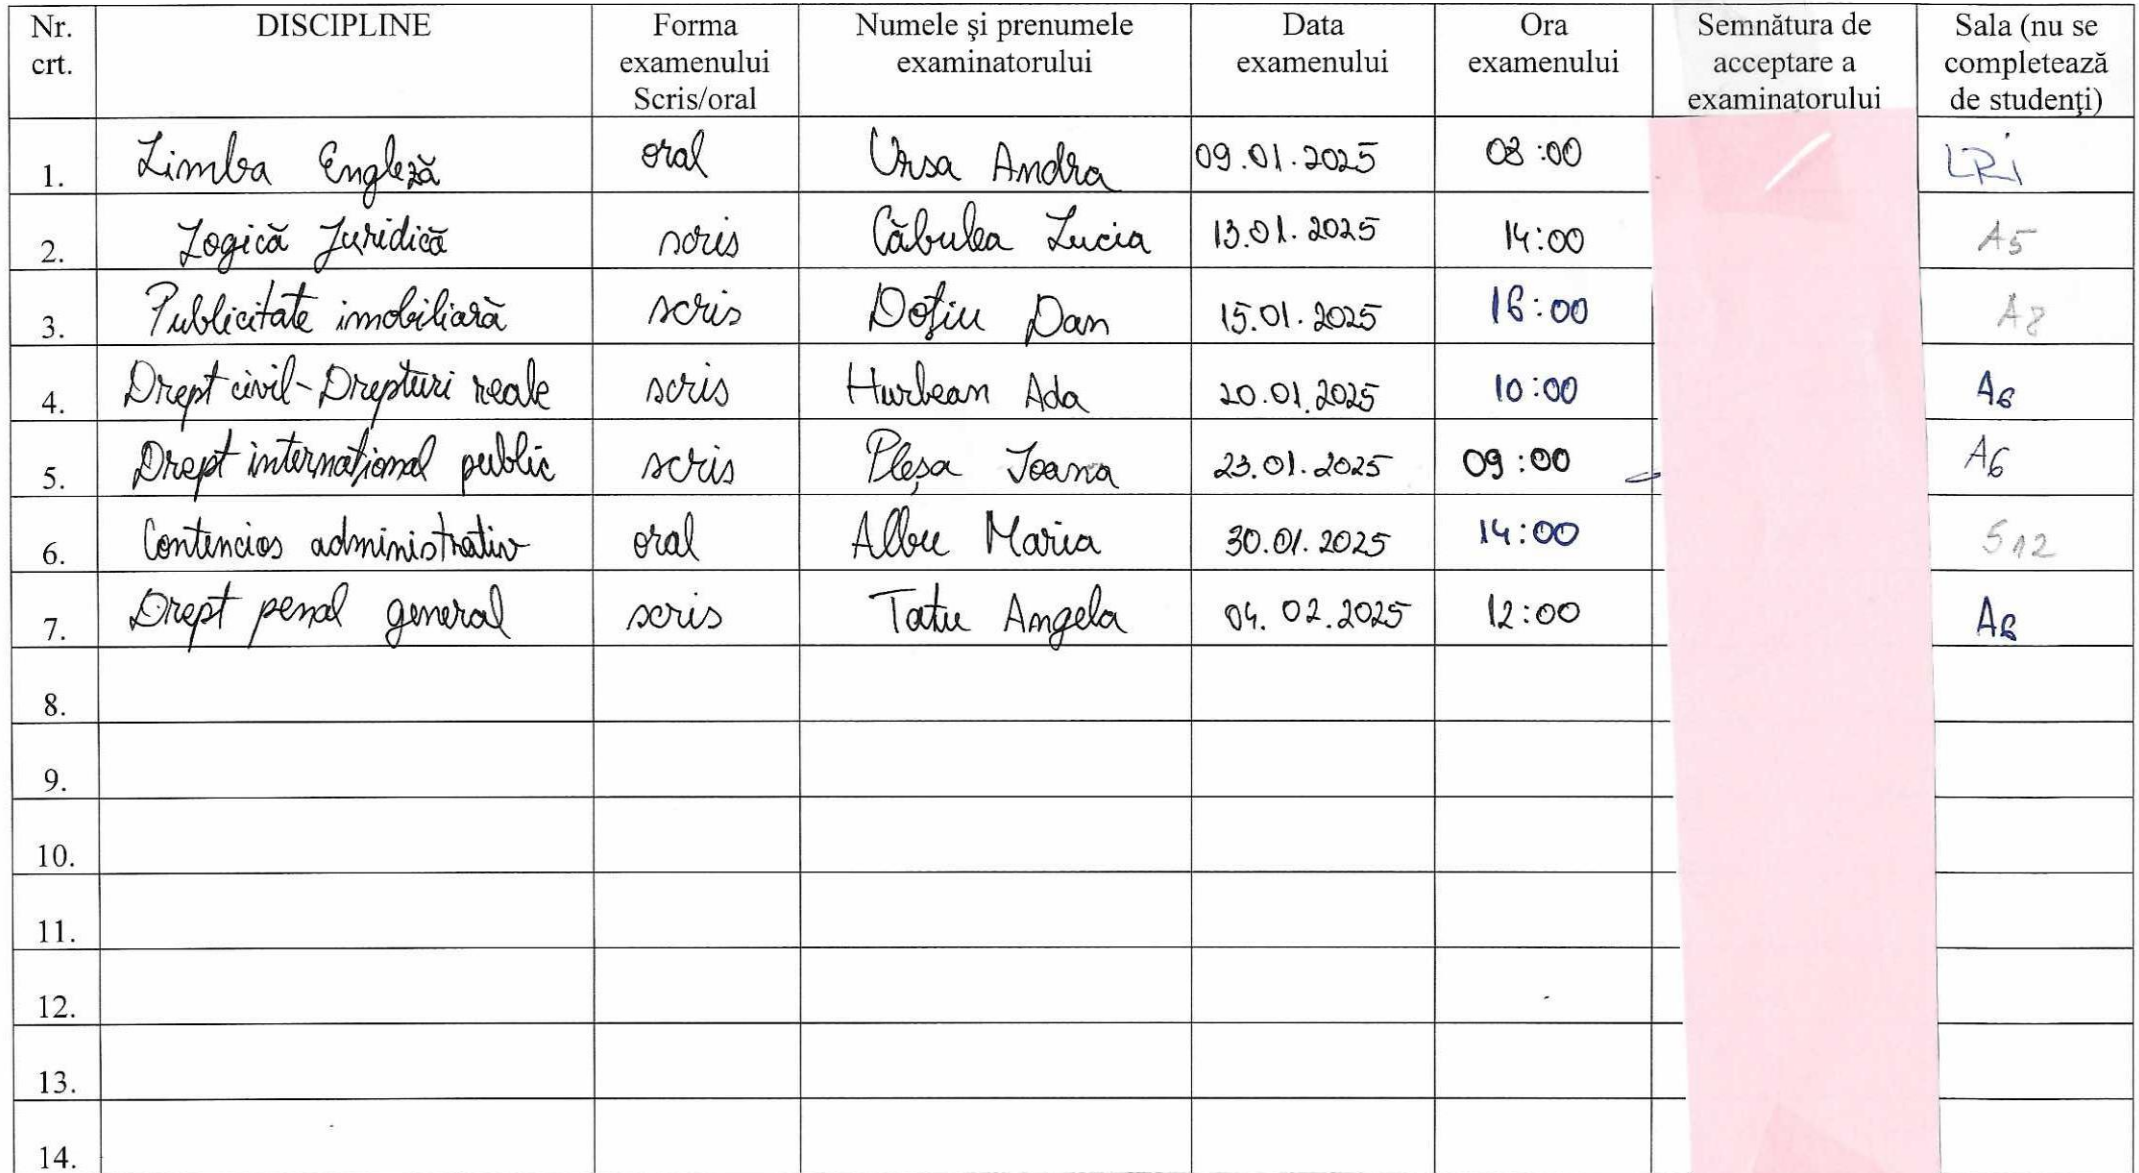 Nr. crt. DISCIPLINE Forma examenului Scris/oral Numele și prenumele examinatorului Data examenului Ora examenului Semnătura de acceptare a examinatorului Sala (nu se completează de studenți)
1. Limba Engleză oral Ursa Andra 09.01.2025 08:00
2. Logică Juridică scris Căbulea Lucia 13.01.2025 14:00 A5
3. Publicitate imobiliară scris Doțiu Dan 15.01.2025 16:00 A8
4. Drept civil-Drepturi reale scris Hurbean Ada 20.01.2025 10:00 A6
5. Drept internațional public scris Pleșa Ioana 23.01.2025 09:00 A6
6. Contencios administrativ oral Albu Maria 30.01.2025 14:00 S12
7. Drept penal general scris Tatu Angela 04.02.2025 12:00 A6
8.
9.
10.
11.
12.
13.
14.